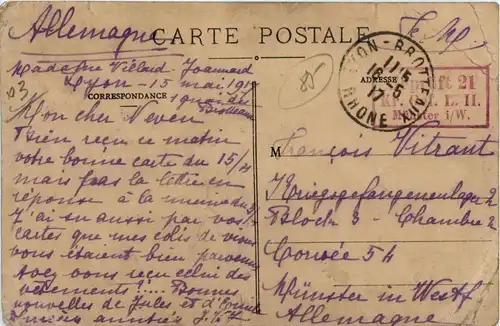 Allemagne
CARTE POSTALE
F. M.
Madame Villard Joannard
Lyon - 15 mai 1917
1 grande
Brotteaux
CORRESPONDANCE
ADRESSE
LYON - BROTTEAUX
11 15
16 - 5
17
RHONE
21
Kr. L. II.
Münster i/W.
Mon cher Neveu
Bien reçu ce matin
votre bonne carte du 15/4
mais pas la lettre en
réponse à la mienne du
J'ai su aussi par vos
cartes que mes colis de
vous étaient bien parvenus
Avez vous reçu celui des
vêtements ?... Bonnes
nouvelles de Jules et d'
amitiés J.V.J
M François Vitrant
Kriegsgefangenenlager 2
Block 3 - Chambre 2
Corvée 54
Münster in Westf
Allemagne